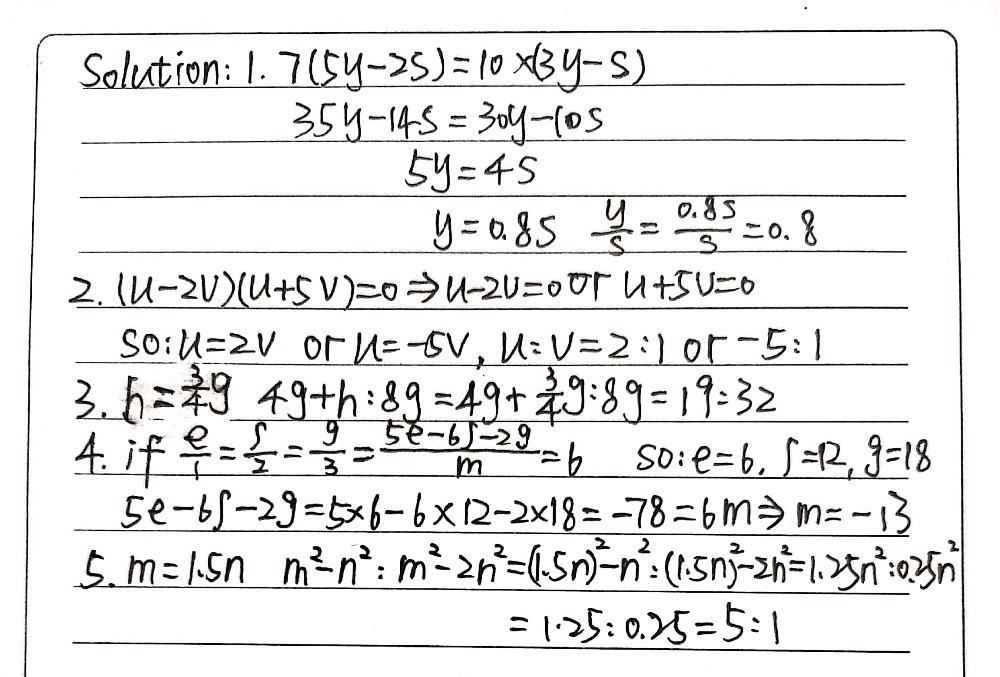 Solution: 1. 7(5y-2s)=10×(3y-s)
35y-14s=30y-10s
5y=4s
y=0.8s y/s=0.8s/s=0.8
2. (u-2v)(u+5v)=0⇒u-2v=0 or u+5v=0
so: u=2v or u=-5v, u:v=2:1 or -5:1
3. h=3/4g 4g+h:8g=4g+3/4g:8g=19:32
4. if e/1=f/2=g/3=5e-6f-2g/m=6 so: e=6, f=12, g=18
5e-6f-2g=5×6-6×12-2×18=-78=6m⇒m=-13
5. m=1.5n m²-n²:m²-2n²=(1.5n)²-n²:(1.5n)²-2n²=1.25n²:0.25n²
=1.25:0.25=5:1